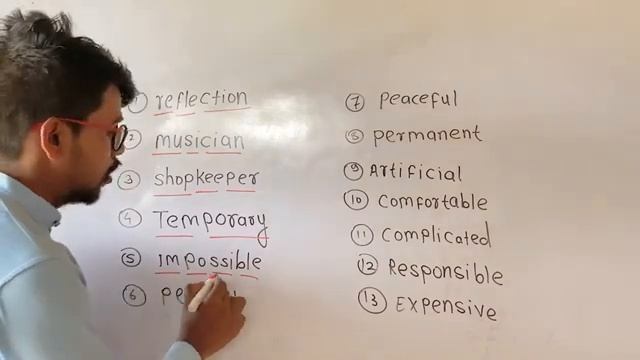 1 reflection
2 musician
3 shopkeeper
4 Temporary
5 impossible
6
7 peaceful
8 permanent
9 Artificial
10 comfortable
11 complicated
12 Responsible
13 Expensive